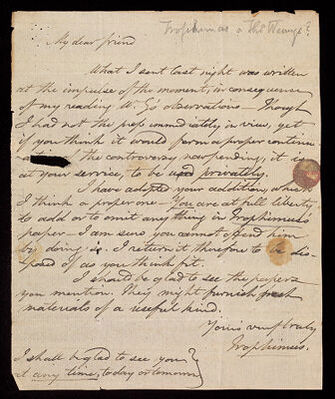 Trophimus & The Wange?
My dear friend
What I sent last night was written
at the impulse of the moment, in consequence
of my reading Mr. G's observations — Though
I had not the press immediately in view, yet
if you think it would form a proper continu
ation the controversy now pending, it is
at your service, to be used privately.
I have adopted your addition, which
I think a proper one — You are at full liberty
to add or to omit any thing in Trophimus's
paper — I am sure you cannot offend him
by doing so. I return it therefore to be dis-
posed of as you think fit.
I should be glad to see the papers
you mention. They might furnish fresh
materials of a useful kind.
Yours very truly
Trophimus.
I shall be glad to see you
at any time, today or tomorrow